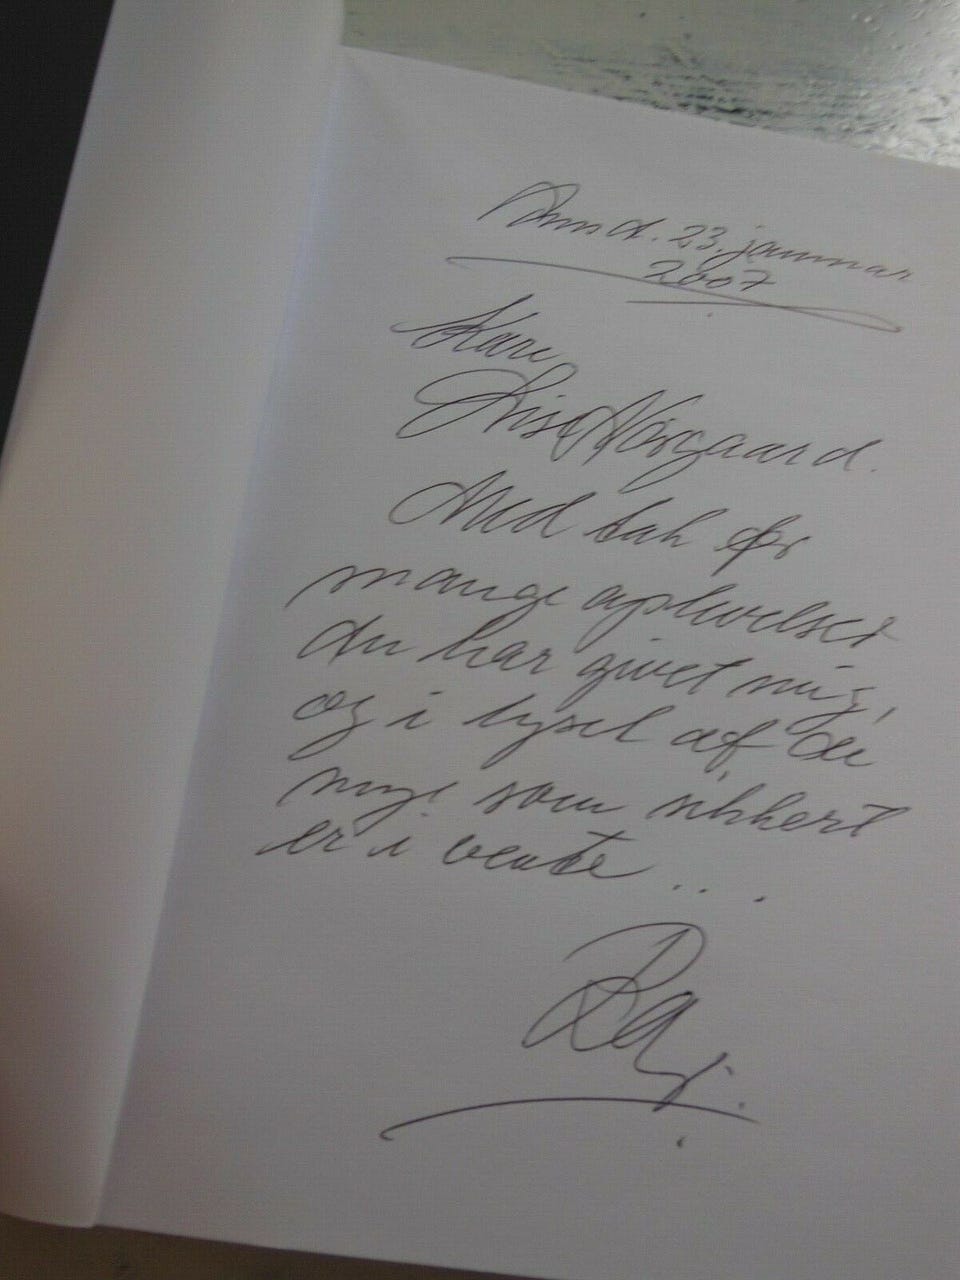 d. 23. januar
2007
Kære
Lise Nørgaard.
Med tak for
mange oplevelser
du har givet mig,
og i lyset af de
nye som sikkert
er i vente...